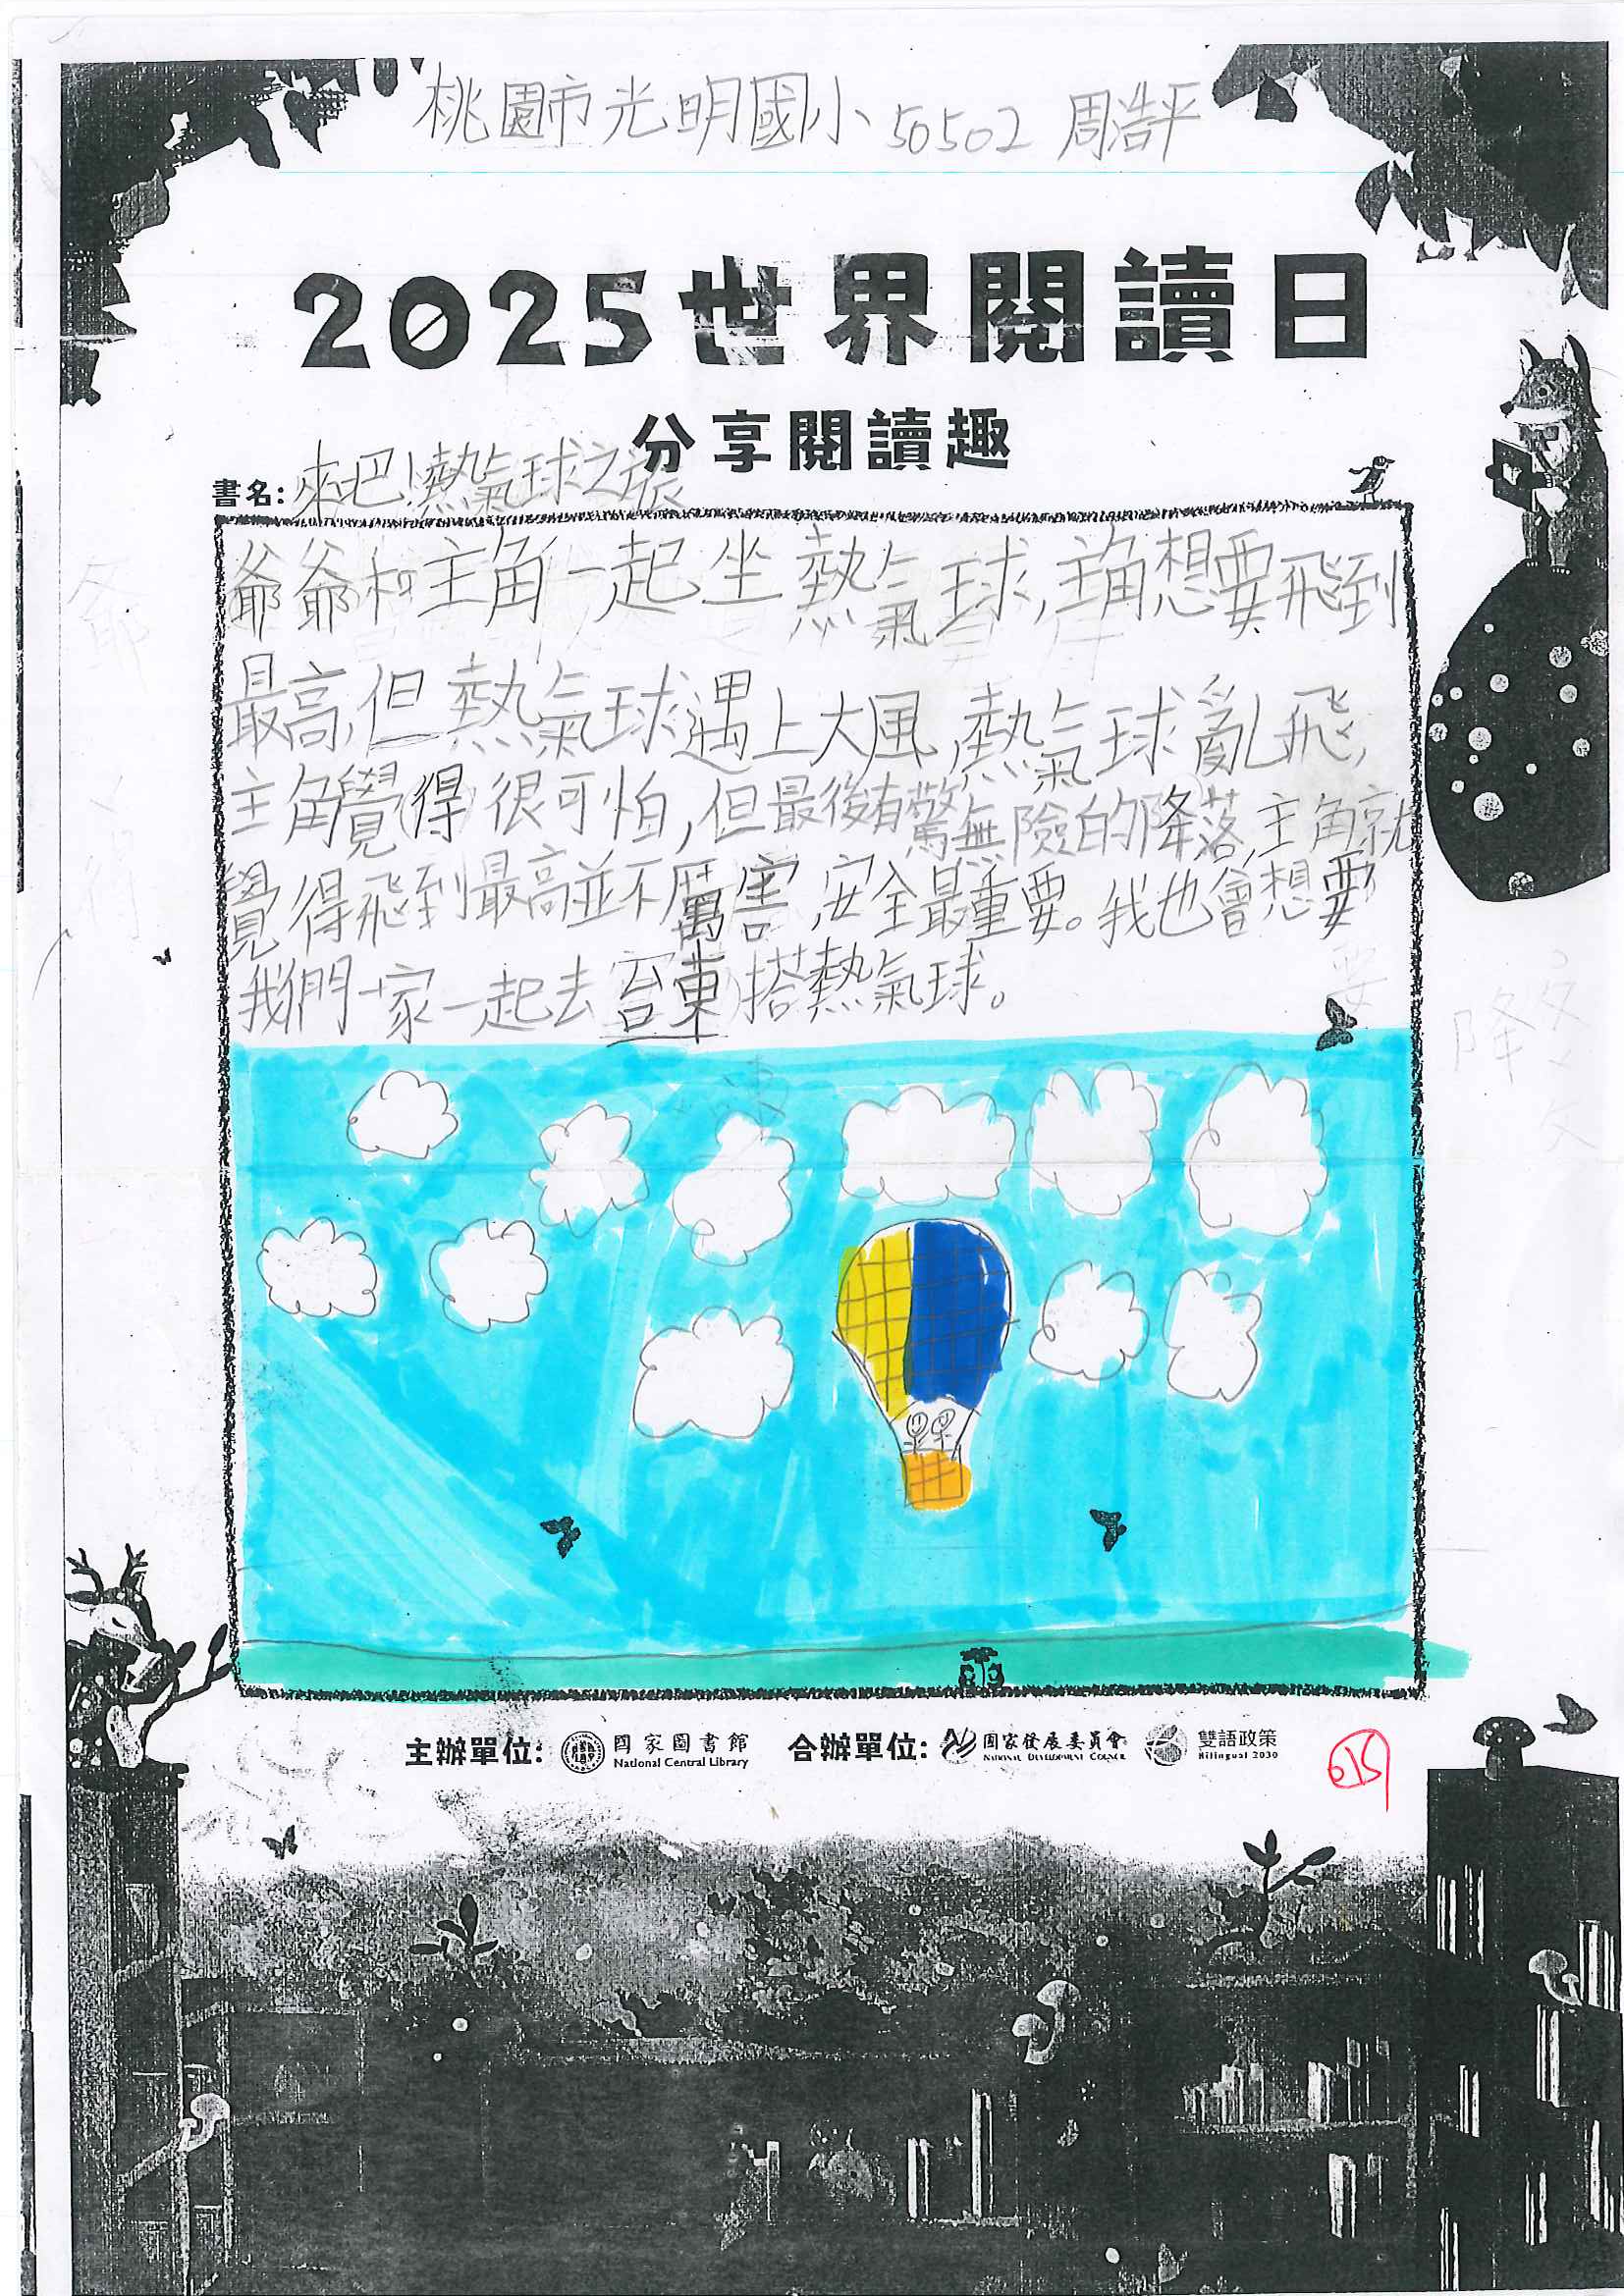 桃園市光明國小 50502 周浩平
2025世界閱讀日
分享閱讀趣
書名: 來吧!熱氣球之旅
爺爺和主角一起坐熱氣球,主角想要飛到
最高,但熱氣球遇上大風,熱氣球亂飛,
主角覺得很可怕,但最後有驚無險的降落,主角就
覺得飛到最高並不厲害,安全最重要。我也會想要
我們一家一起去台東搭熱氣球。
主辦單位: 國家圖書館 National Central Library 合辦單位: 國家發展委員會 NATIONAL DEVELOPMENT COUNCIL 雙語政策 Bilingual 2030